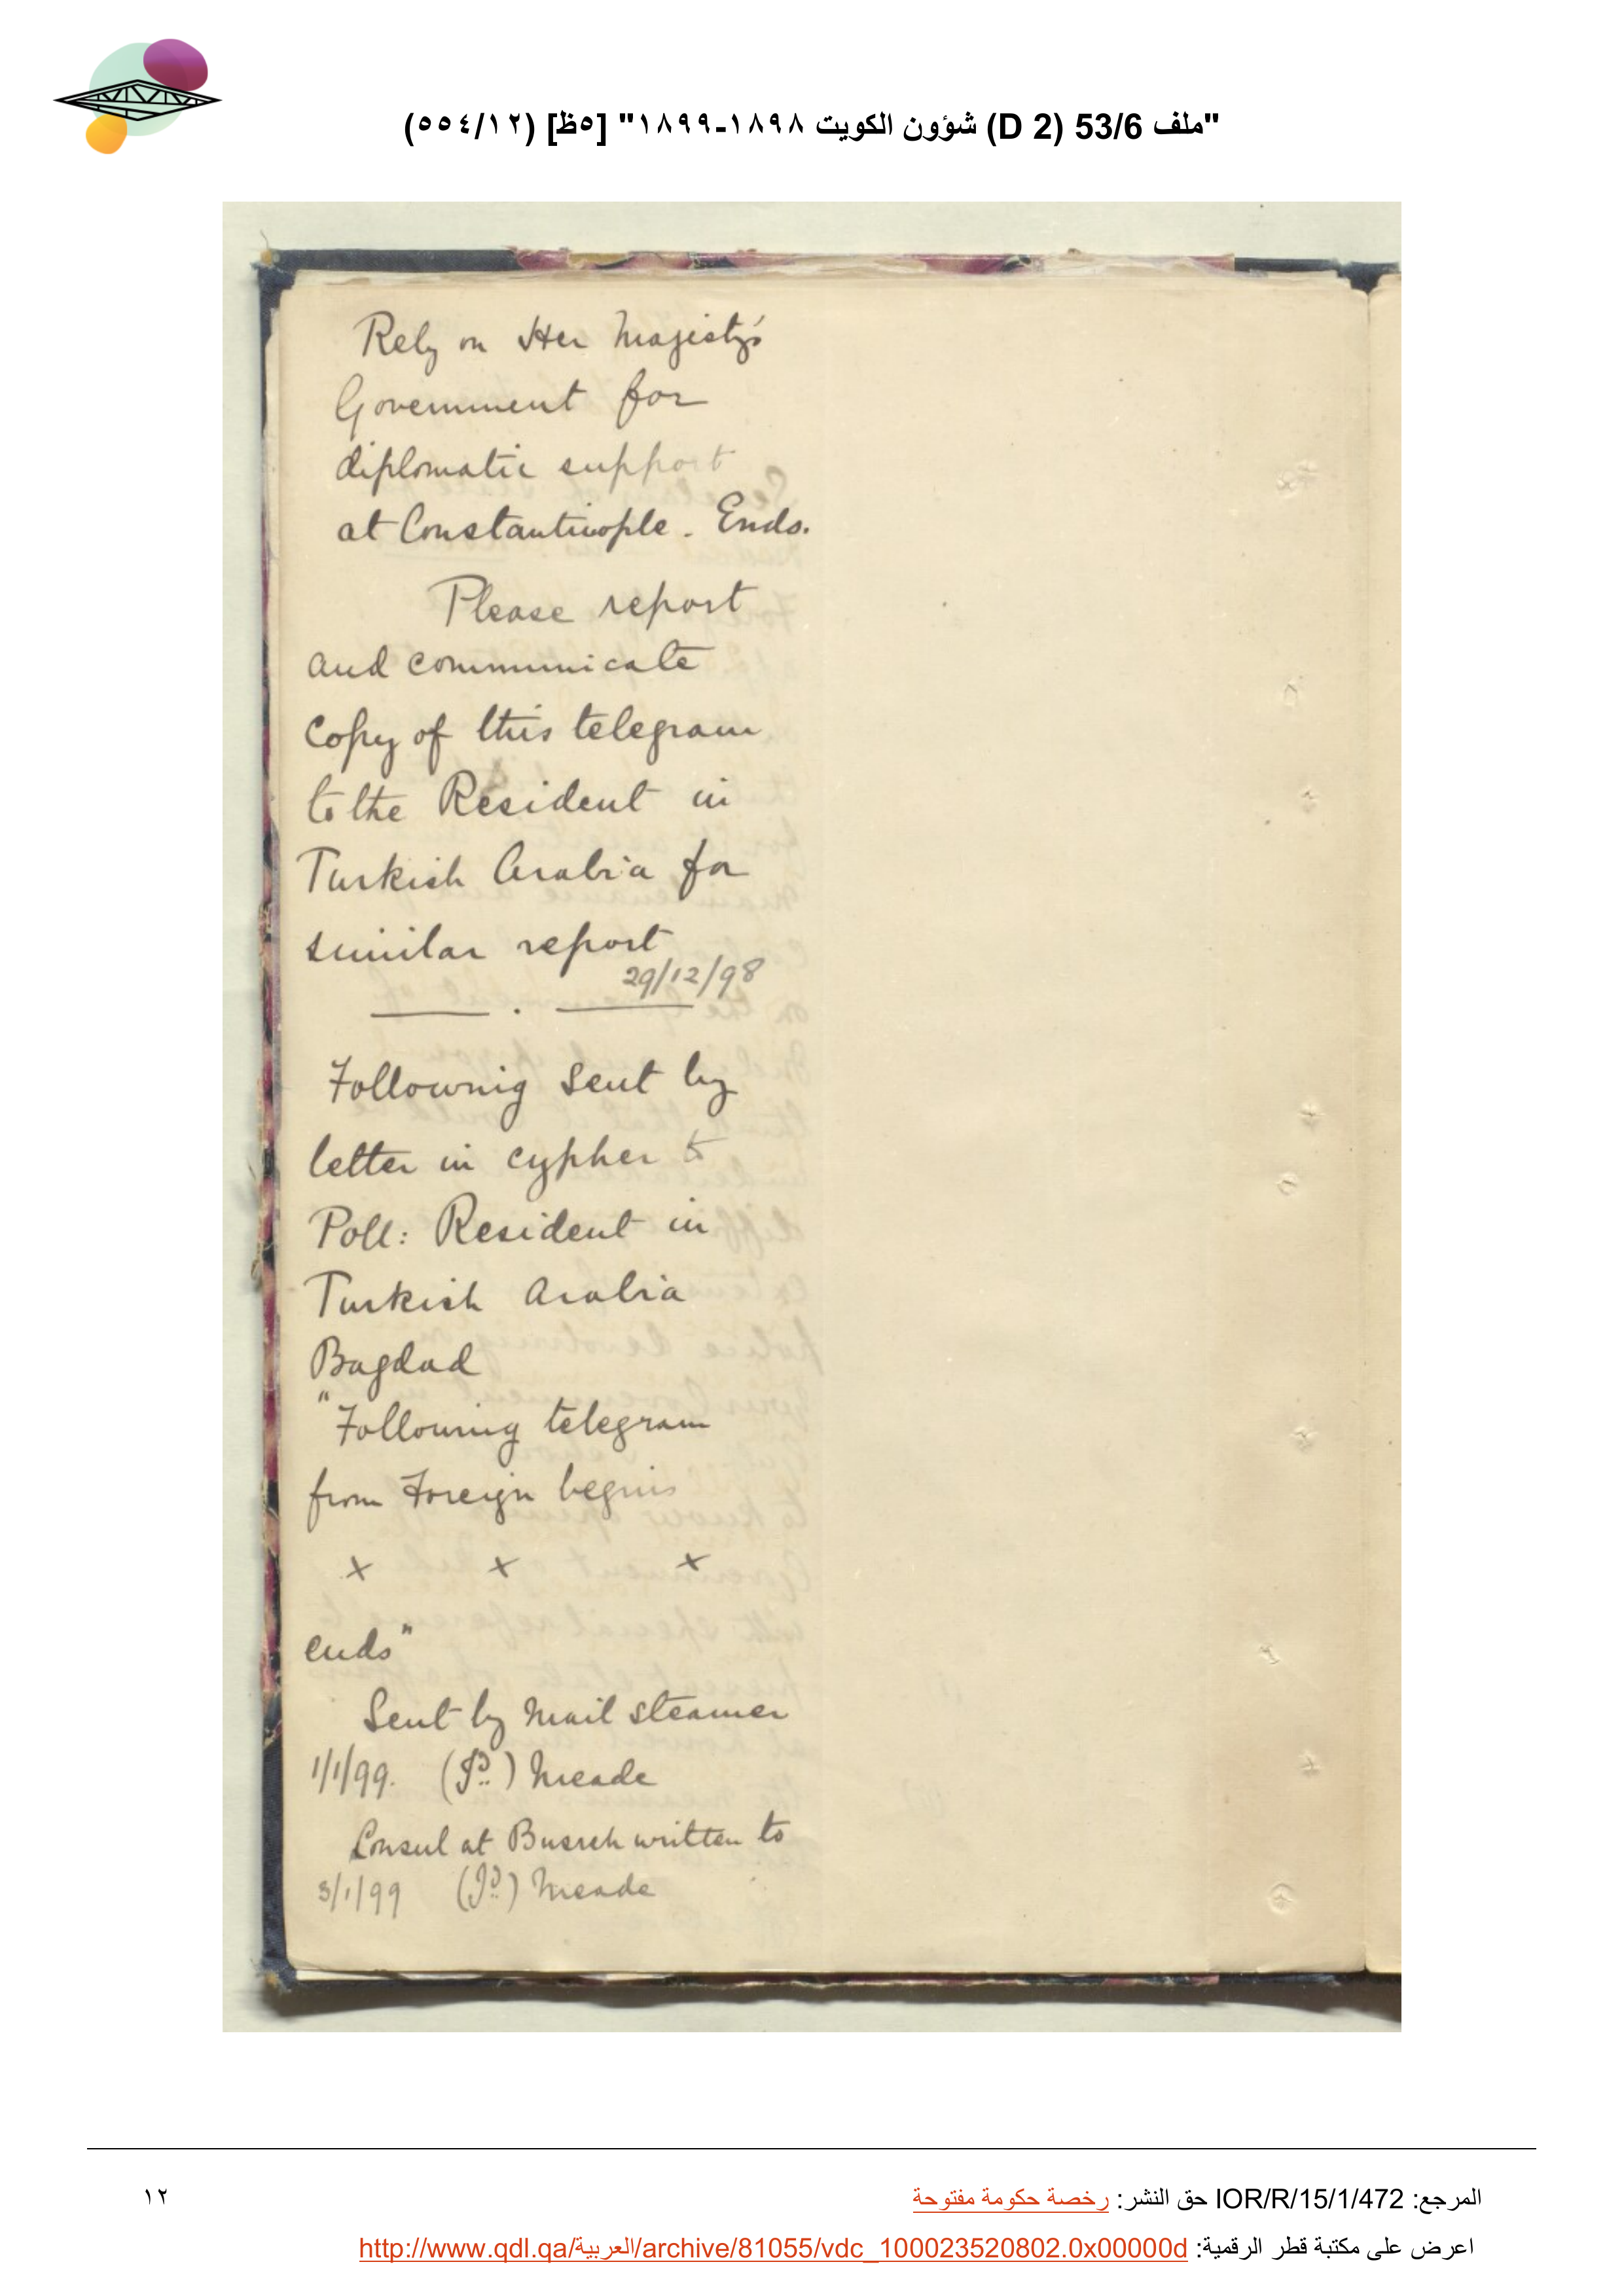 "ملف 53/6 (D 2) شؤون الكويت ١٨٩٨-١٨٩٩" [٥ظ] (٥٥٤/١٢)
Rely on Her Majesty's
Government for
diplomatic support
at Constantinople. Ends.
Please report
and communicate
copy of this telegram
to the Resident in
Turkish Arabia for
similar report
29/12/98
Following sent by
letter in cypher to
Poll: Resident in
Turkish Arabia
Bagdad
"Following telegram
from Foreign begins
x x x
ends"
Sent by Mail steamer
1/1/99. (Sd.) Meade
Consul at Busreh written to
3/1/99 (Sd.) Meade
المرجع: IOR/R/15/1/472 حق النشر: رخصة حكومة مفتوحة
١٢
اعرض على مكتبة قطر الرقمية: http://www.qdl.qa/العربية/archive/81055/vdc_100023520802.0x00000d